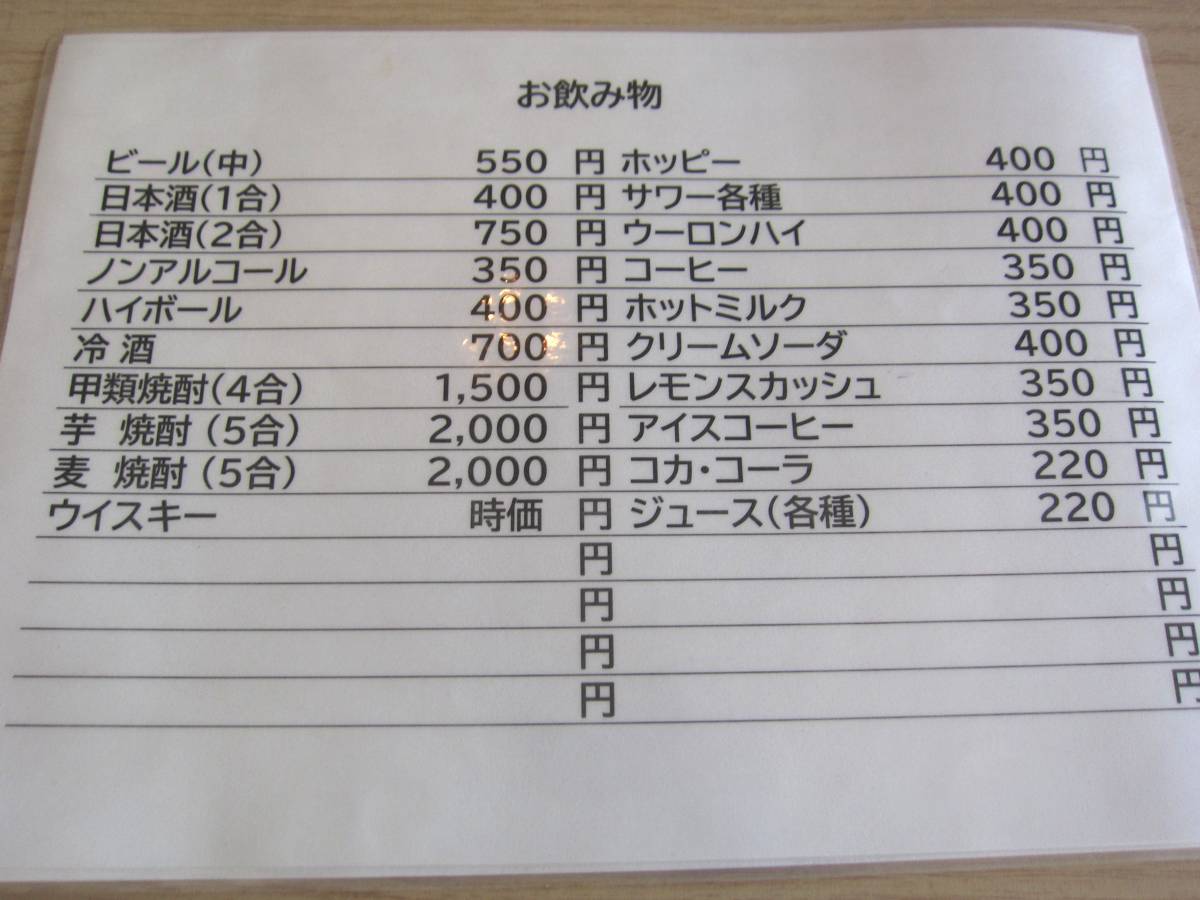 お飲み物
ビール(中) 550 円 ホッピー 400 円
日本酒(1合) 400 円 サワー各種 400 円
日本酒(2合) 750 円 ウーロンハイ 400 円
ノンアルコール 350 円 コーヒー 350 円
ハイボール 400 円 ホットミルク 350 円
冷 酒 700 円 クリームソーダ 400 円
甲類焼酎(4合) 1,500 円 レモンスカッシュ 350 円
芋 焼酎 (5合) 2,000 円 アイスコーヒー 350 円
麦 焼酎 (5合) 2,000 円 コカ・コーラ 220 円
ウイスキー 時価 円 ジュース(各種) 220 円
円 円
円 円
円 円
円 円